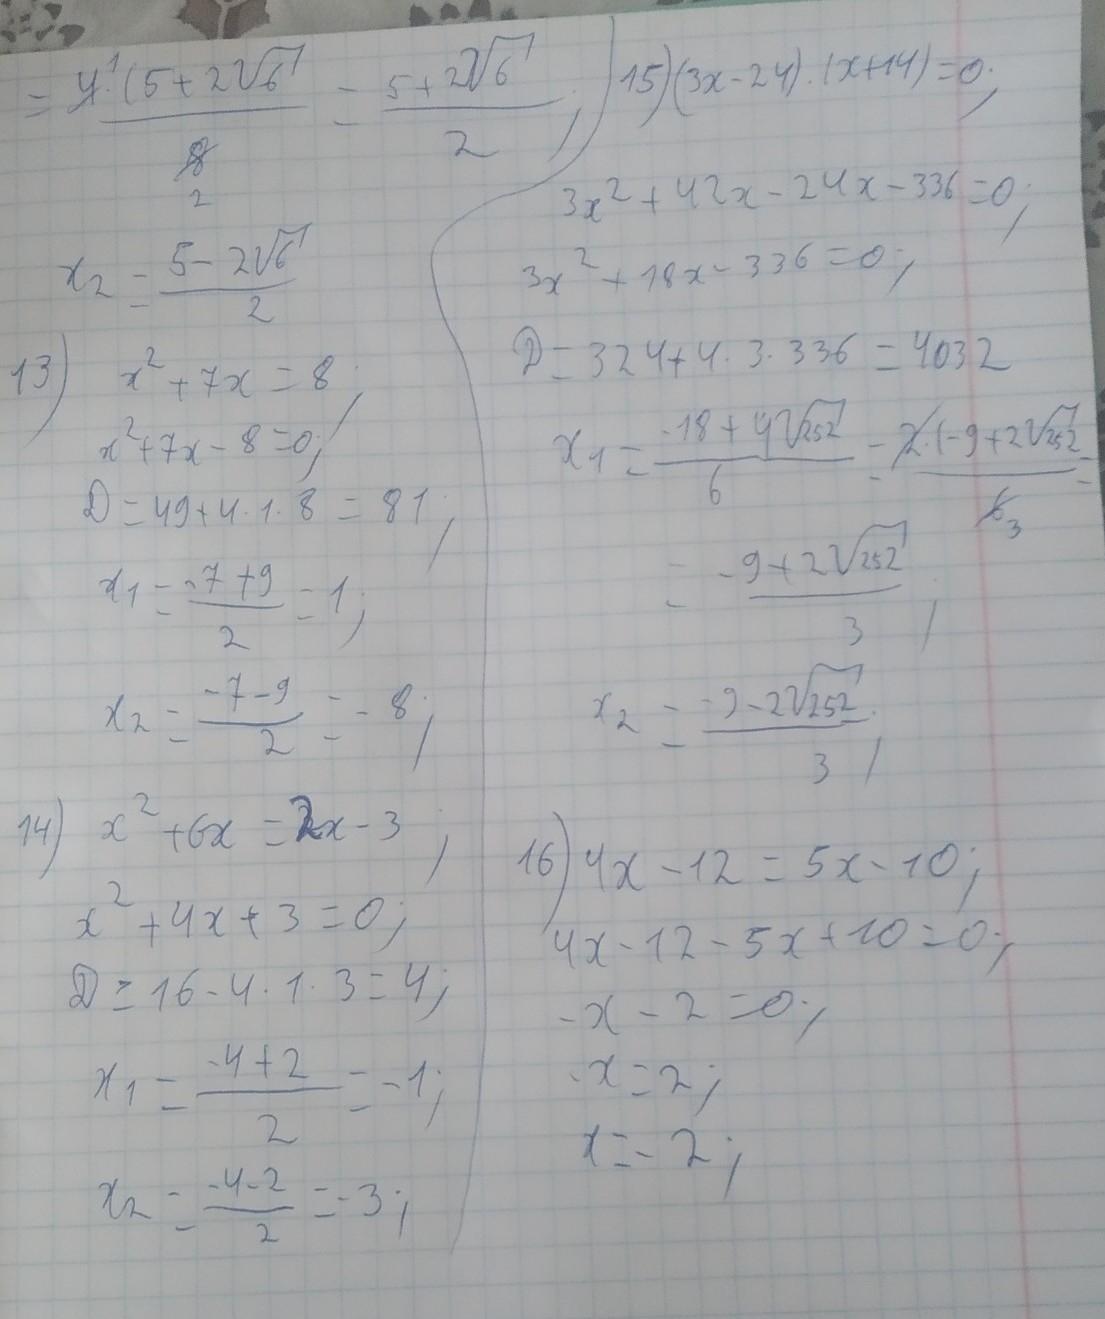 = 4¹·(5+2√6)/8 2 = (5+2√6)/2;
x₂ = (5-2√6)/2
13) x²+7x=8;
x²+7x-8=0;
D=49+4·1·8=81;
x₁ = (-7+9)/2 = 1;
x₂ = (-7-9)/2 = -8;
14) x²+6x=2x-3;
x²+4x+3=0;
D=16-4·1·3=4;
x₁ = (-4+2)/2 = -1;
x₂ = (-4-2)/2 = -3;
15) (3x-24)·(x+14)=0;
3x²+42x-24x-336=0;
3x²+18x-336=0;
D=324+4·3·336=4032
x₁ = (-18+4√252)/6 = 2·(-9+2√252)/6 3 =
= (-9+2√252)/3;
x₂ = (-9-2√252)/3;
16) 4x-12=5x-10;
4x-12-5x+10=0;
-x-2=0;
-x=2;
x=-2;